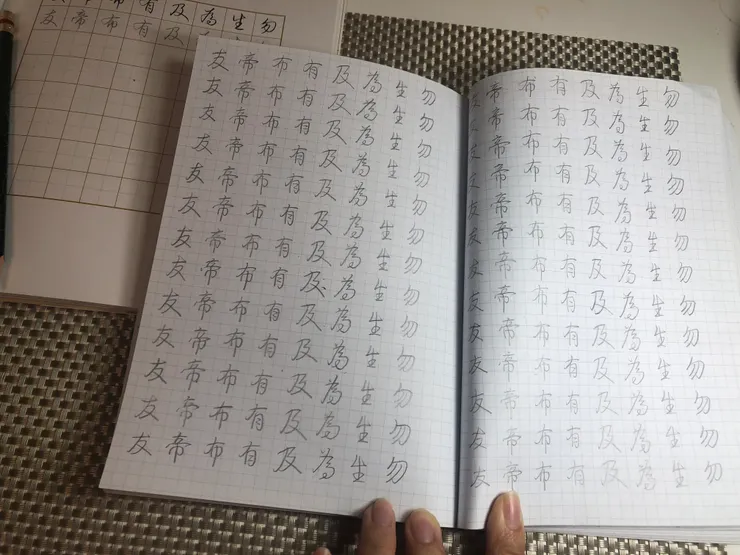 有 及 為 生 勿
友 帝 布 有 及
友 帝 布 有 及 為 生 勿
友 帝 布 有 及 為 生 勿
友 帝 布 有 及 為 生 勿
友 帝 布 有 及 為 生 勿
友 帝 布 有 及 為 生 勿
友 帝 布 有 及 為 生 勿
友 帝 布 有 及 為 生 勿
友 帝 布 有 及 為 生 勿
友 帝 布 有 及 為 生 勿
友 帝 布 有 及 為 生 勿
友 帝 布 有 及 為 生 勿
友 帝 布 有 及 為 生 勿
友 帝 布 有 及 為 生 勿
帝 布 有 及 為 生 勿
帝 布 有 及 為 生 勿
帝 布 有 及 為 生 勿
帝 布 有 及 為 生 勿
友 帝 布 有 及 為 生 勿
友 帝 布 有 及 為 生 勿
友 帝 布 有 及 為 生 勿
友 帝 布 有 及 為 生 勿
友 帝 布 有 及 為 生 勿
友 帝 布 有 及 為 生 勿
友 帝 布 有 及 為 生 勿
友 帝 布 有 及 為 生 勿
友 帝 布 有 及 為 生 勿